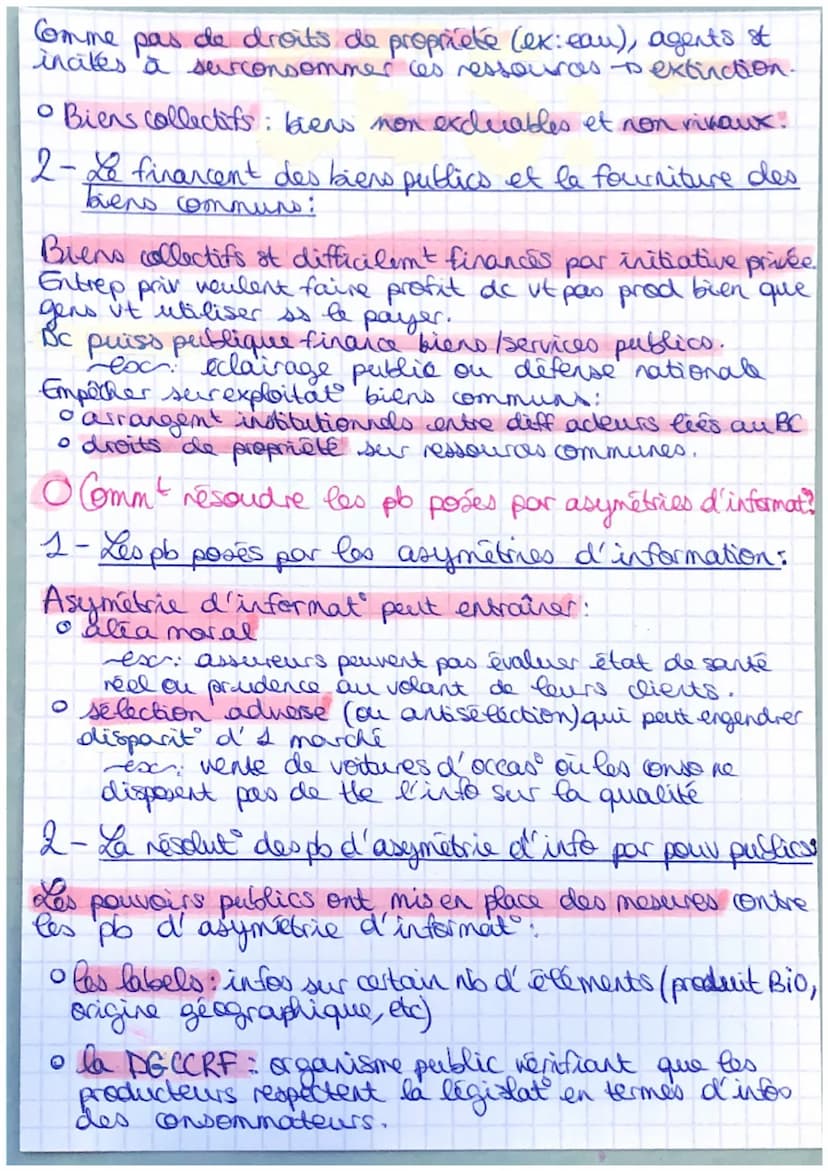 Comme pas de droits de propriété (ex: eau), agents st
incités à surconsommer ces ressources → extinction.
o Biens collectifs : biens non excluables et non rivaux.
2 - Le financent des biens publics et la fourniture des
biens communs :
Biens collectifs st difficilemt financés par initiative privée.
Entrep priv veulent faire profit dc vt pas prod bien que
gens vt utiliser ss le payer.
Dc puiss publique finance biens/services publics.
→ ex: éclairage public ou défense nationale
Empêcher surexploitat° biens communs :
o arrangemt institutionnels entre diff acteurs liés au BC
o droits de propriété sur ressources communes.
O Commt résoudre les pb posés par asymétries d'informat°?
1 - Les pb posés par les asymétries d'information :
Asymétrie d'informat° peut entraîner :
o aléa moral
→ ex: assureurs peuvent pas évaluer état de santé
réel ou prudence au volant de leurs clients.
o sélection adverse (ou antisélection) qui peut engendrer
disparit° d'1 marché
→ ex: vente de voitures d'occas° où les conso ne
disposent pas de tte l'info sur la qualité
2 - La résolut° des pb d'asymétrie d'info par pouv publics
Les pouvoirs publics ont mis en place des mesures contre
les pb d'asymétrie d'informat° :
o les labels : infos sur certain nb d'éléments (produit Bio,
origine géographique, etc)
o la DGCCRF : organisme public vérifiant que les
producteurs respectent la législat° en termes d'infos
des consommateurs.